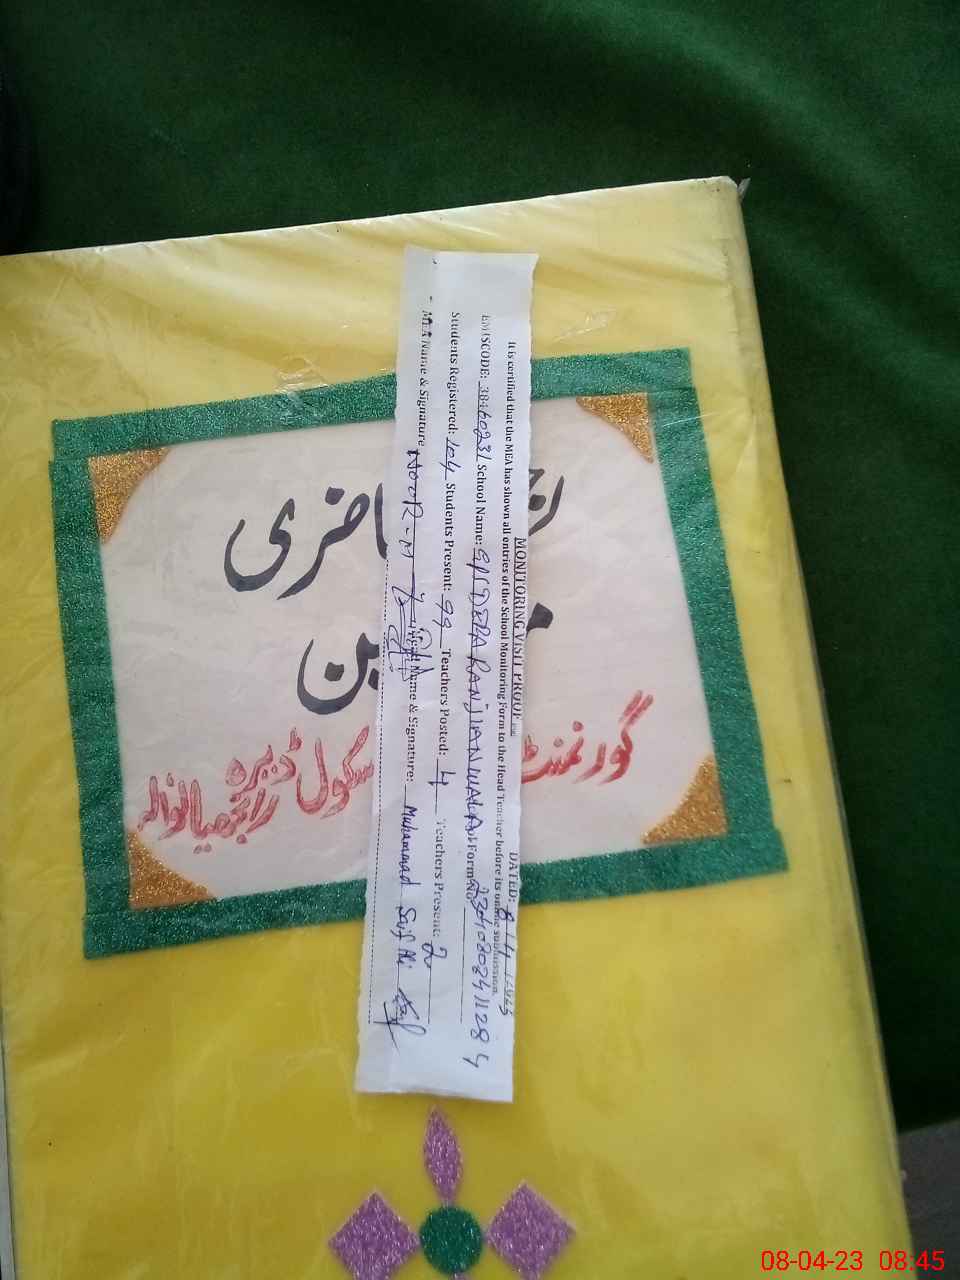 MONITORING VISIT PROOF DATED: 8/4/2023
It is certified that the MEA has shown all entries of the School Monitoring Form to the Head Teacher before its online submission.
EMISCODE: 38460231 School Name: GPS DERA RANJIANWALA Form No 23040802411284
Students Registered: 104 Students Present: 99 Teachers Posted: 4 Teachers Present: 2
MEA Name & Signature NOOR-M Name & Signature: Muhammad Saif Ali
حاضری
گورنمنٹ سکول ڈیرہ
رانجھیانوالہ
08-04-23 08:45